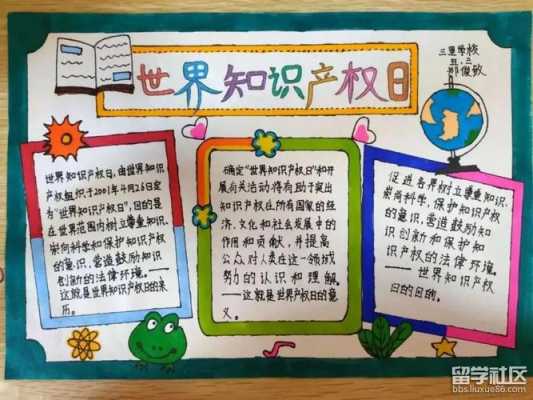 世界知识产权日
三里学校
五.三
世界知识产权日,由世界知识
产权组织于2001年4月26日定
有"世界知识产权日",目的是
在世界范围内树立尊重知识,
崇尚科学和保护知识产权
的意识,营造鼓励知识
创新的法律环境。——
这就是世界知识产权日的来
历。
确定"世界知识产权日"和开
展有关活动将有助于突出
知识产权在所有国家的经
济、文化和社会发展中的
作用和贡献,并提高
公众对人类在这一领域
努力的认识和理解。
——这就是世界产权日的意
义。
促进各界树立尊重知识、
崇尚科学、保护知识产权
的意识,营造鼓励知
识创新和保护知
识产权的法律环境。
——世界知识产权
日的目的。
留学社区
bbs.liuxue86.com